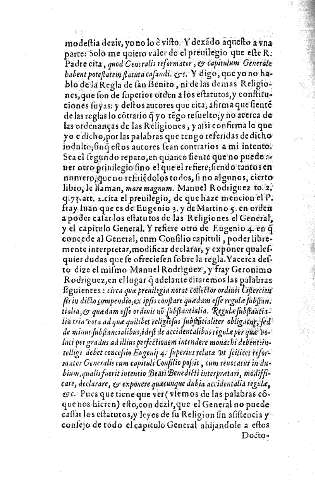 modestia dezir, yo no lo è visto. Y dexãdo aquesto a vna
parte: Solo me quiero valer de el preuilegio que este R.
Padre cita, quod Generalis reformater, & capitulum Generale
habent potestatem statuta casandi. &c. Y digo, que yo no ha-
blo de la Regla de san Benito, ni de las demas Religio-
nes, que son de superior orden a los estatutos, y constitu-
ciones suyas: y destos autores que cita, afirma que siente
de las reglas lo cõtrario q̃ yo tẽgo resuelto; y no acerca de
las ordenanças de las Religiones, y asi confirma lo que
yo e dicho, por las palabras que tengo referidas de dicho
indulto, sinq̃ estos autores sean contrarios a mi intento.
Sea el segundo reparo, en quanto siente que no puede
ver otro priuilegio sino el que el refiere; siendo tantos en
numero, que no refiriẽdolos todos, si no algunos, cierto
libro, le llaman, mare magnum. Manuel Rodriguez to. 2.
q. 73. art. 2. cita el preuilegio, de que haze mencion el P.
fray Iuan que es de Eugenio 3. y de Martino 5. en orden
a poder casar los estatutos de las Religiones el General,
y el capitulo General. Y refiere otro de Eugenio 4. en q̃
concede al General, cum Consilio capituli, poder libre-
mente interpretar, modificar declarar, y exponer quales-
quier dudas que se ofreciesen sobre la regla. Y acerca des-
to dize el mismo Manuel Rodriguez, y fray Geronimo
Rodriguez, en el lugar q̃ adelante citaremos las palabras
siguientes: circa que preuilegia notat collector ordinis Cisterciensis
in dicto compendio, ex ipsis constare quædam esse regulæ substan-
tialia, & quædam esse ordinis nõ substantialia. Regulæ substãtia-
lia tria vota ad quæ quilibet religiosus substãcialiter obligatur, sed
de minus substancialibus, idest de accidentalibus regulæ per quæ ve-
luti per gradus ad illius perfectionem intendere monachi debent in-
tellige debet concessio Eugenij 4. superius relata vt scilicet refor-
mator Generalis cum capituli Consilio posit, cum renocant in du-
bium, qualis fuerit intentio Beati Benedicti interpretari, modifi-
care, declarare, & exponere quæcunque dubia accidentalia regulæ,
&c. Pues que tiene que ver (viemos de las palabras cõ-
que nos hieren) esto, con dezir, que el General no puede
casar los estatutos, y leyes de su Religion sin asistencia y
consejo de todo el capitulo General ahijandole a estos
Docto-